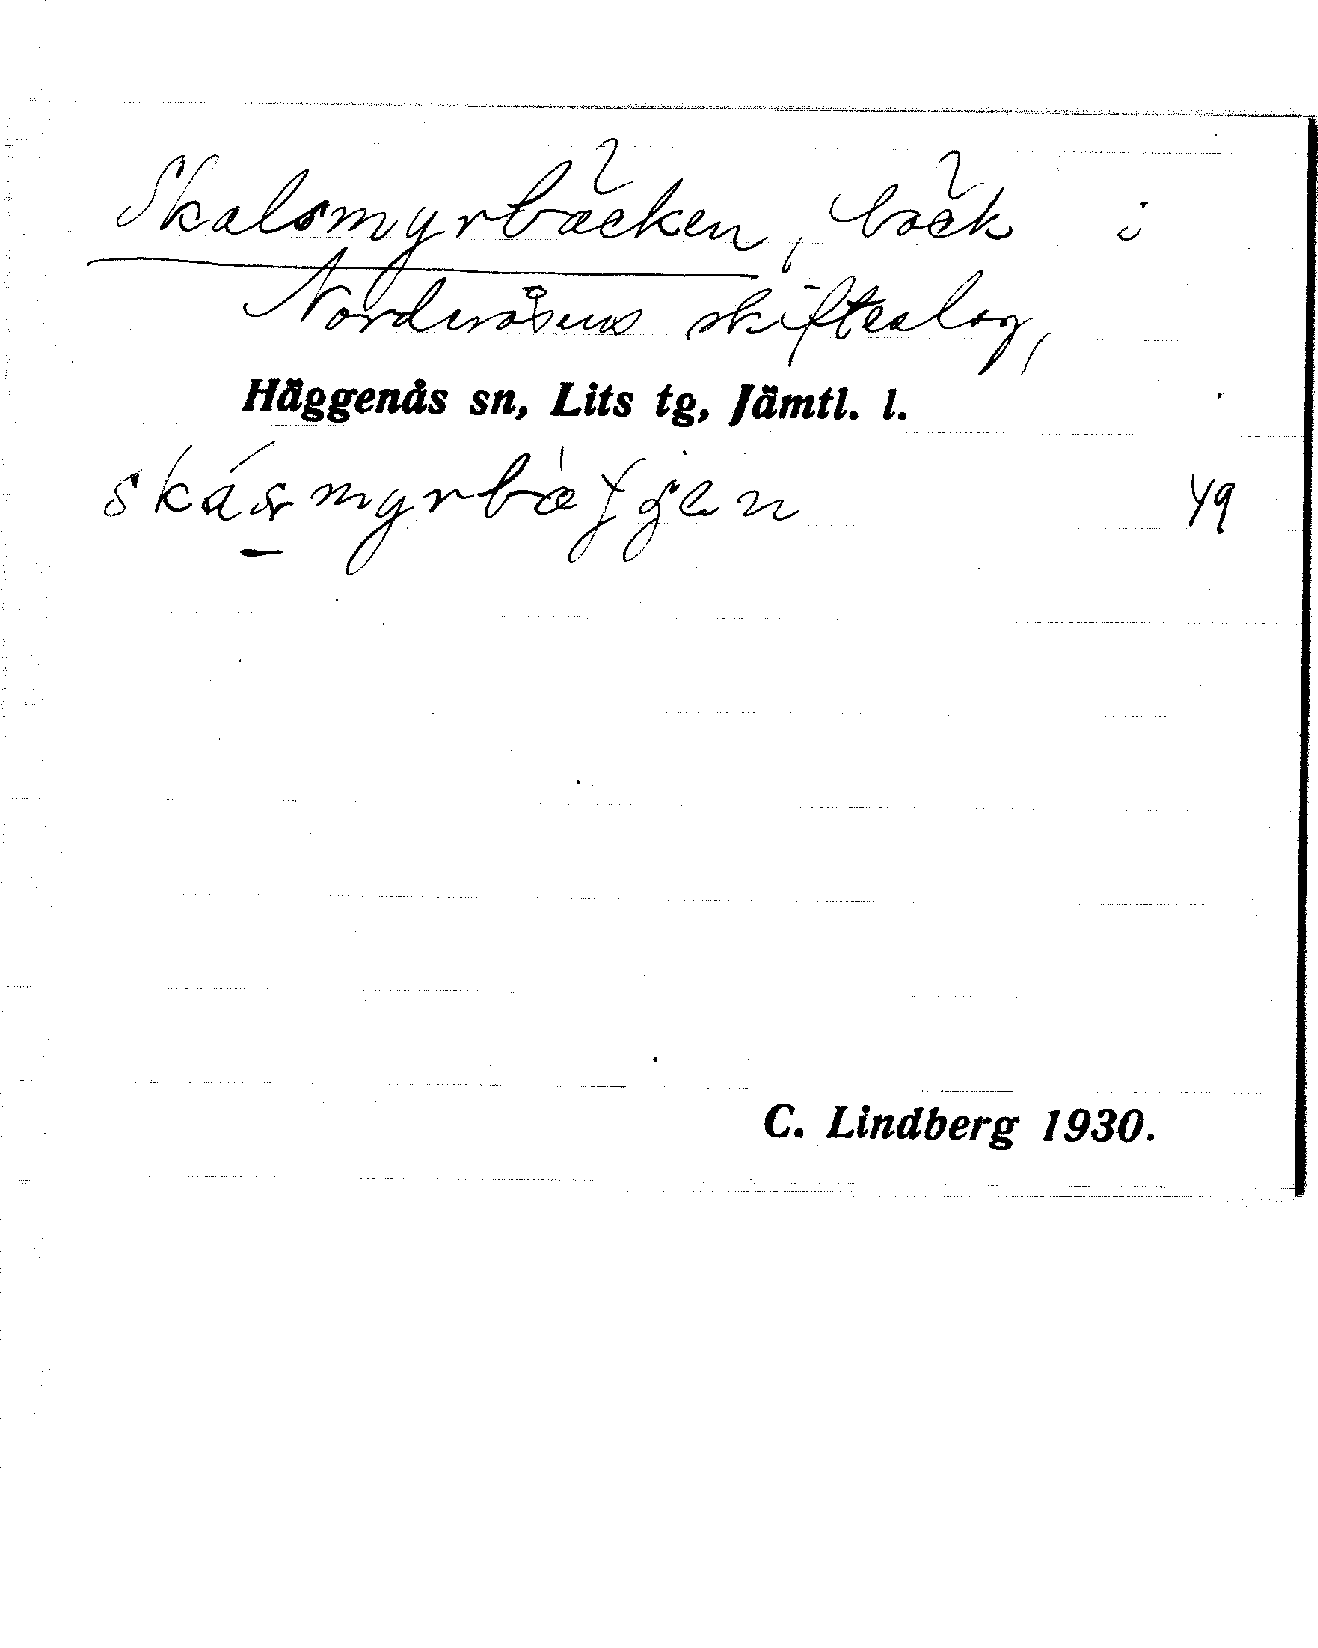 Skalsmyrbäcken, bäck i
Norderåsens skifteslag,
Häggenås sn, Lits tg, Jämtl. l.
49
C. Lindberg 1930.